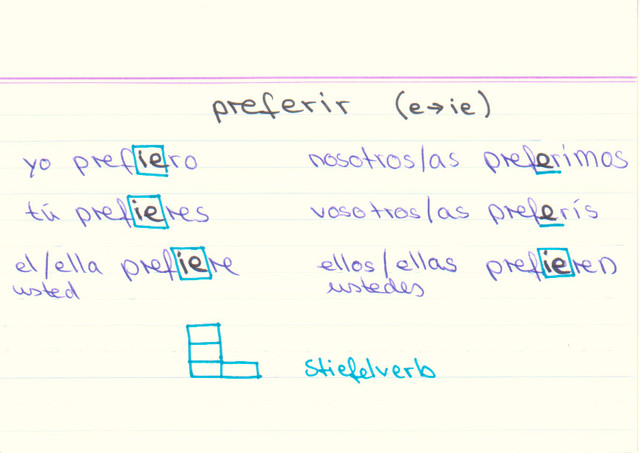 preferir (e→ie)
yo prefiero nosotros/as preferimos
tú prefieres vosotros/as preferís
el/ella prefiere ellos/ellas prefieren
usted ustedes
Stiefelverb